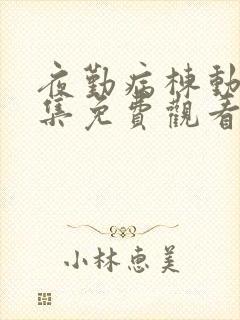 夜勤病棟動
集免費觀看
小林惠美